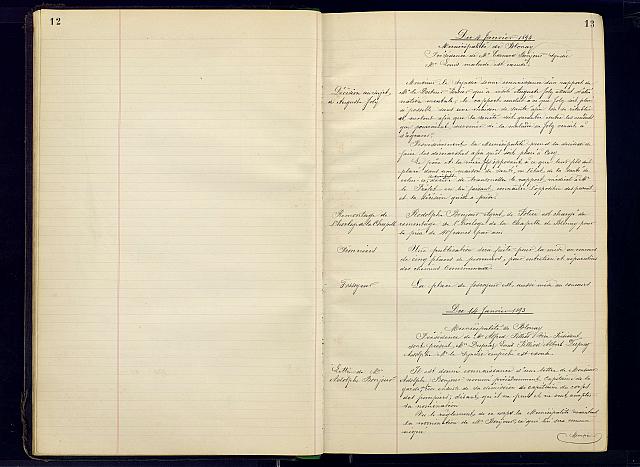 12
13
Du 4 Janvier 1893
Municipalité de Blonay
Présidence de Mr Edouard Bonjour Syndic
Mr Louis malade est excusé.
Décision au sujet
d'Auguste Joly
Monsieur le Syndic donne connaissance d'un rapport de
Mr le Docteur qui a visité Auguste Joly atteint d'alié-
nation mentale; le rapport conclut à ce que Joly soit placé
dans une maison de santé
et surtout afin que la santé soit
qui pourraient survenir de la maladie de Joly venait à
s'aggraver.
la Municipalité prend la décision de
faire les démarches afin qu'il soit placé à Cery
Le père et la mère s'opposant à ce que leur fils soit
placé dans une maison de santé, vu l'état de la santé de
celui-ci, décide de transmettre le rapport médical à Mr
le Préfet en lui faisant connaître l'opposition des parents
et la décision qu'elle a prise.
Remontage de
l'horloge de la Chapelle
Rodolphe Bonjour agent de Police est chargé du
remontage de l'horloge de la Chapelle de Blonay pour
le prix de 40 francs par an
Pionniers
Une publication sera faite pour la mise au concours
de cinq places de pionniers, pour entretien et réparations
des chemins communaux
Fossoyeur
La place de fossoyeur est aussi mise au concours
Du 14 Janvier 1893
Municipalité de Blonay
Présidence de Mr Alfred Président
sont présents Mrs Louis Albert
Adolphe Mr le Syndic empêché est excusé.
Lettre de Mr
Adolphe Bonjour
Il est donné connaissance d'une lettre de Monsieur
Adolphe Bonjour nommé précédemment Capitaine de la
garde, en suite de sa démission de capitaine du corps
des pompiers, disant qu'il ne peut et ne veut accepter
sa nomination
Vu le règlement de ce corps la Municipalité maintient
la nomination de Mr Bonjour, ce que lui sera commu-
niqué